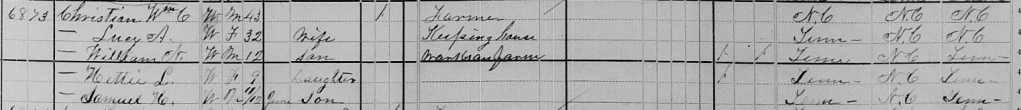 6873 Christian Wm C W M 43 1 Farmer N.C N.C N.C
— Lucy A. W F 32 Wife Keeping house Tenn — N.C N.C
— William N. W M 12 Son Works on farm 1 1 Tenn N.C Tenn —
— Hettie L. W F 9 Daughter 1 Tenn — N.C Tenn —
— Samuel H. W M 11/12 June Son Tenn — N.C Tenn —